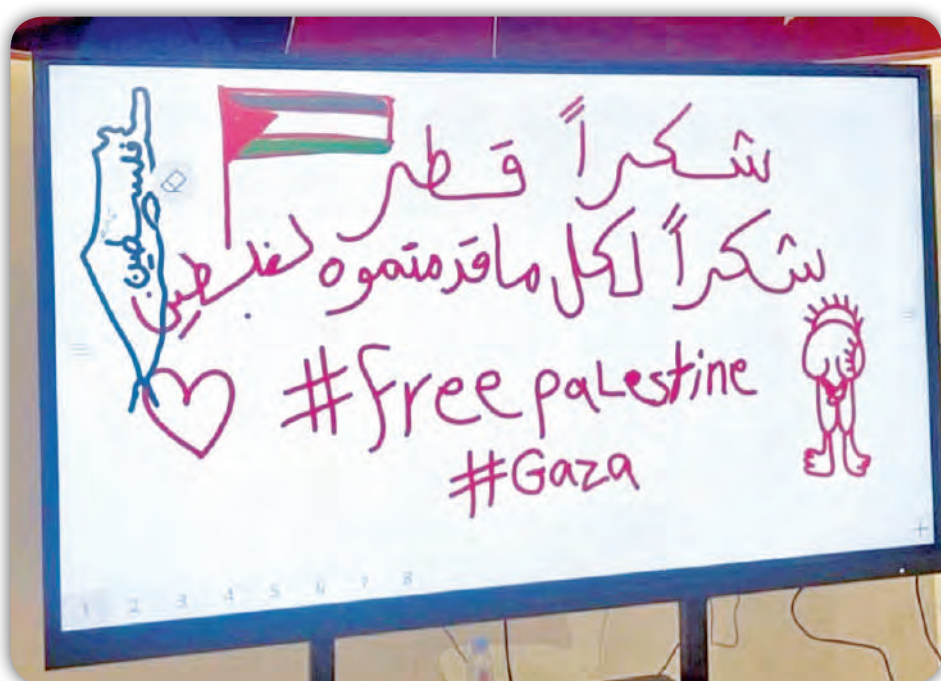 شكراً قطر
شكراً لكل ما قدمتموه لفلسطين
فلسطين
#freepalestine
#Gaza
1 2 3 4 5 6 7 8